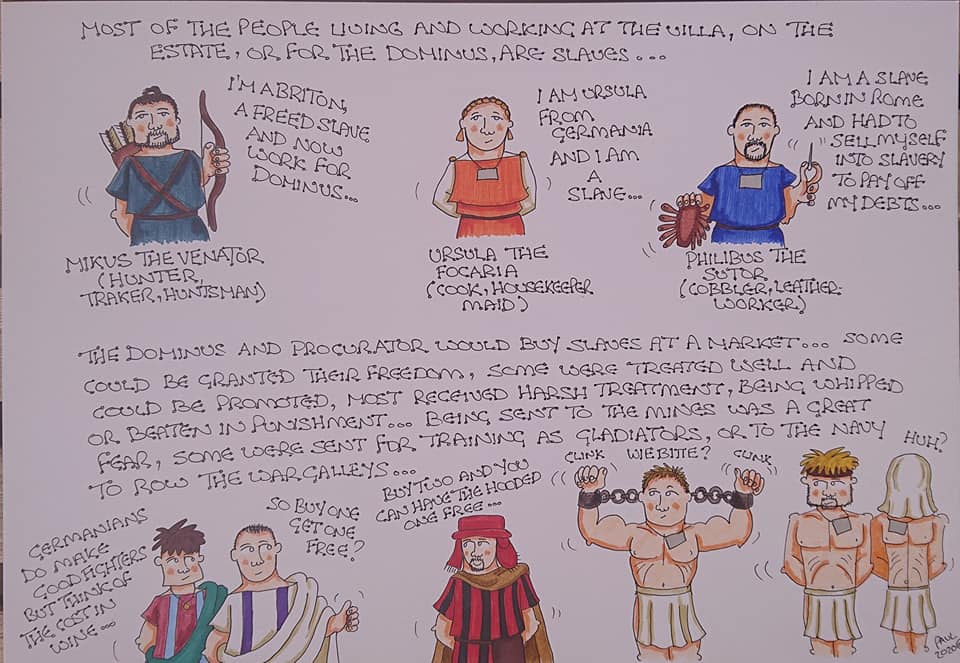 MOST OF THE PEOPLE LIVING AND WORKING AT THE VILLA, ON THE
ESTATE, OR FOR THE DOMINUS, ARE SLAVES...
I'M A BRITON,
A FREED SLAVE
AND NOW
WORK FOR
DOMINUS...
MIKUS THE VENATOR
(HUNTER,
TRAKER, HUNTSMAN)
I AM URSULA
FROM
GERMANIA
AND I AM
A
SLAVE...
URSULA THE
FOCARIA
(COOK, HOUSEKEEPER
MAID)
I AM A SLAVE
BORN IN ROME
AND HAD TO
SELL MYSELF
INTO SLAVERY
TO PAY OFF
MY DEBTS...
PHILIBUS THE
SUTOR
(COBBLER, LEATHER-
WORKER)
THE DOMINUS AND PROCURATOR WOULD BUY SLAVES AT A MARKET... SOME
COULD BE GRANTED THEIR FREEDOM, SOME WERE TREATED WELL AND
COULD BE PROMOTED, MOST RECEIVED HARSH TREATMENT, BEING WHIPPED
OR BEATEN IN PUNISHMENT... BEING SENT TO THE MINES WAS A GREAT
FEAR, SOME WERE SENT FOR TRAINING AS GLADIATORS, OR TO THE NAVY
TO ROW THE WAR GALLEYS...
GERMANIANS
DO MAKE
GOOD FIGHTERS
BUT THINK OF
THE COST IN
WINE...
SO BUY ONE
GET ONE
FREE?
BUY TWO AND YOU
CAN HAVE THE HOODED
ONE FREE...
CLINK
WIE BITTE?
CLINK
HUH?
PAUL
2020©